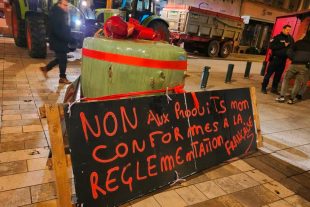 NON AUX PRODUITS NON
CONFORMES À LA
RÉGLEMENTATION
FRANÇAISE